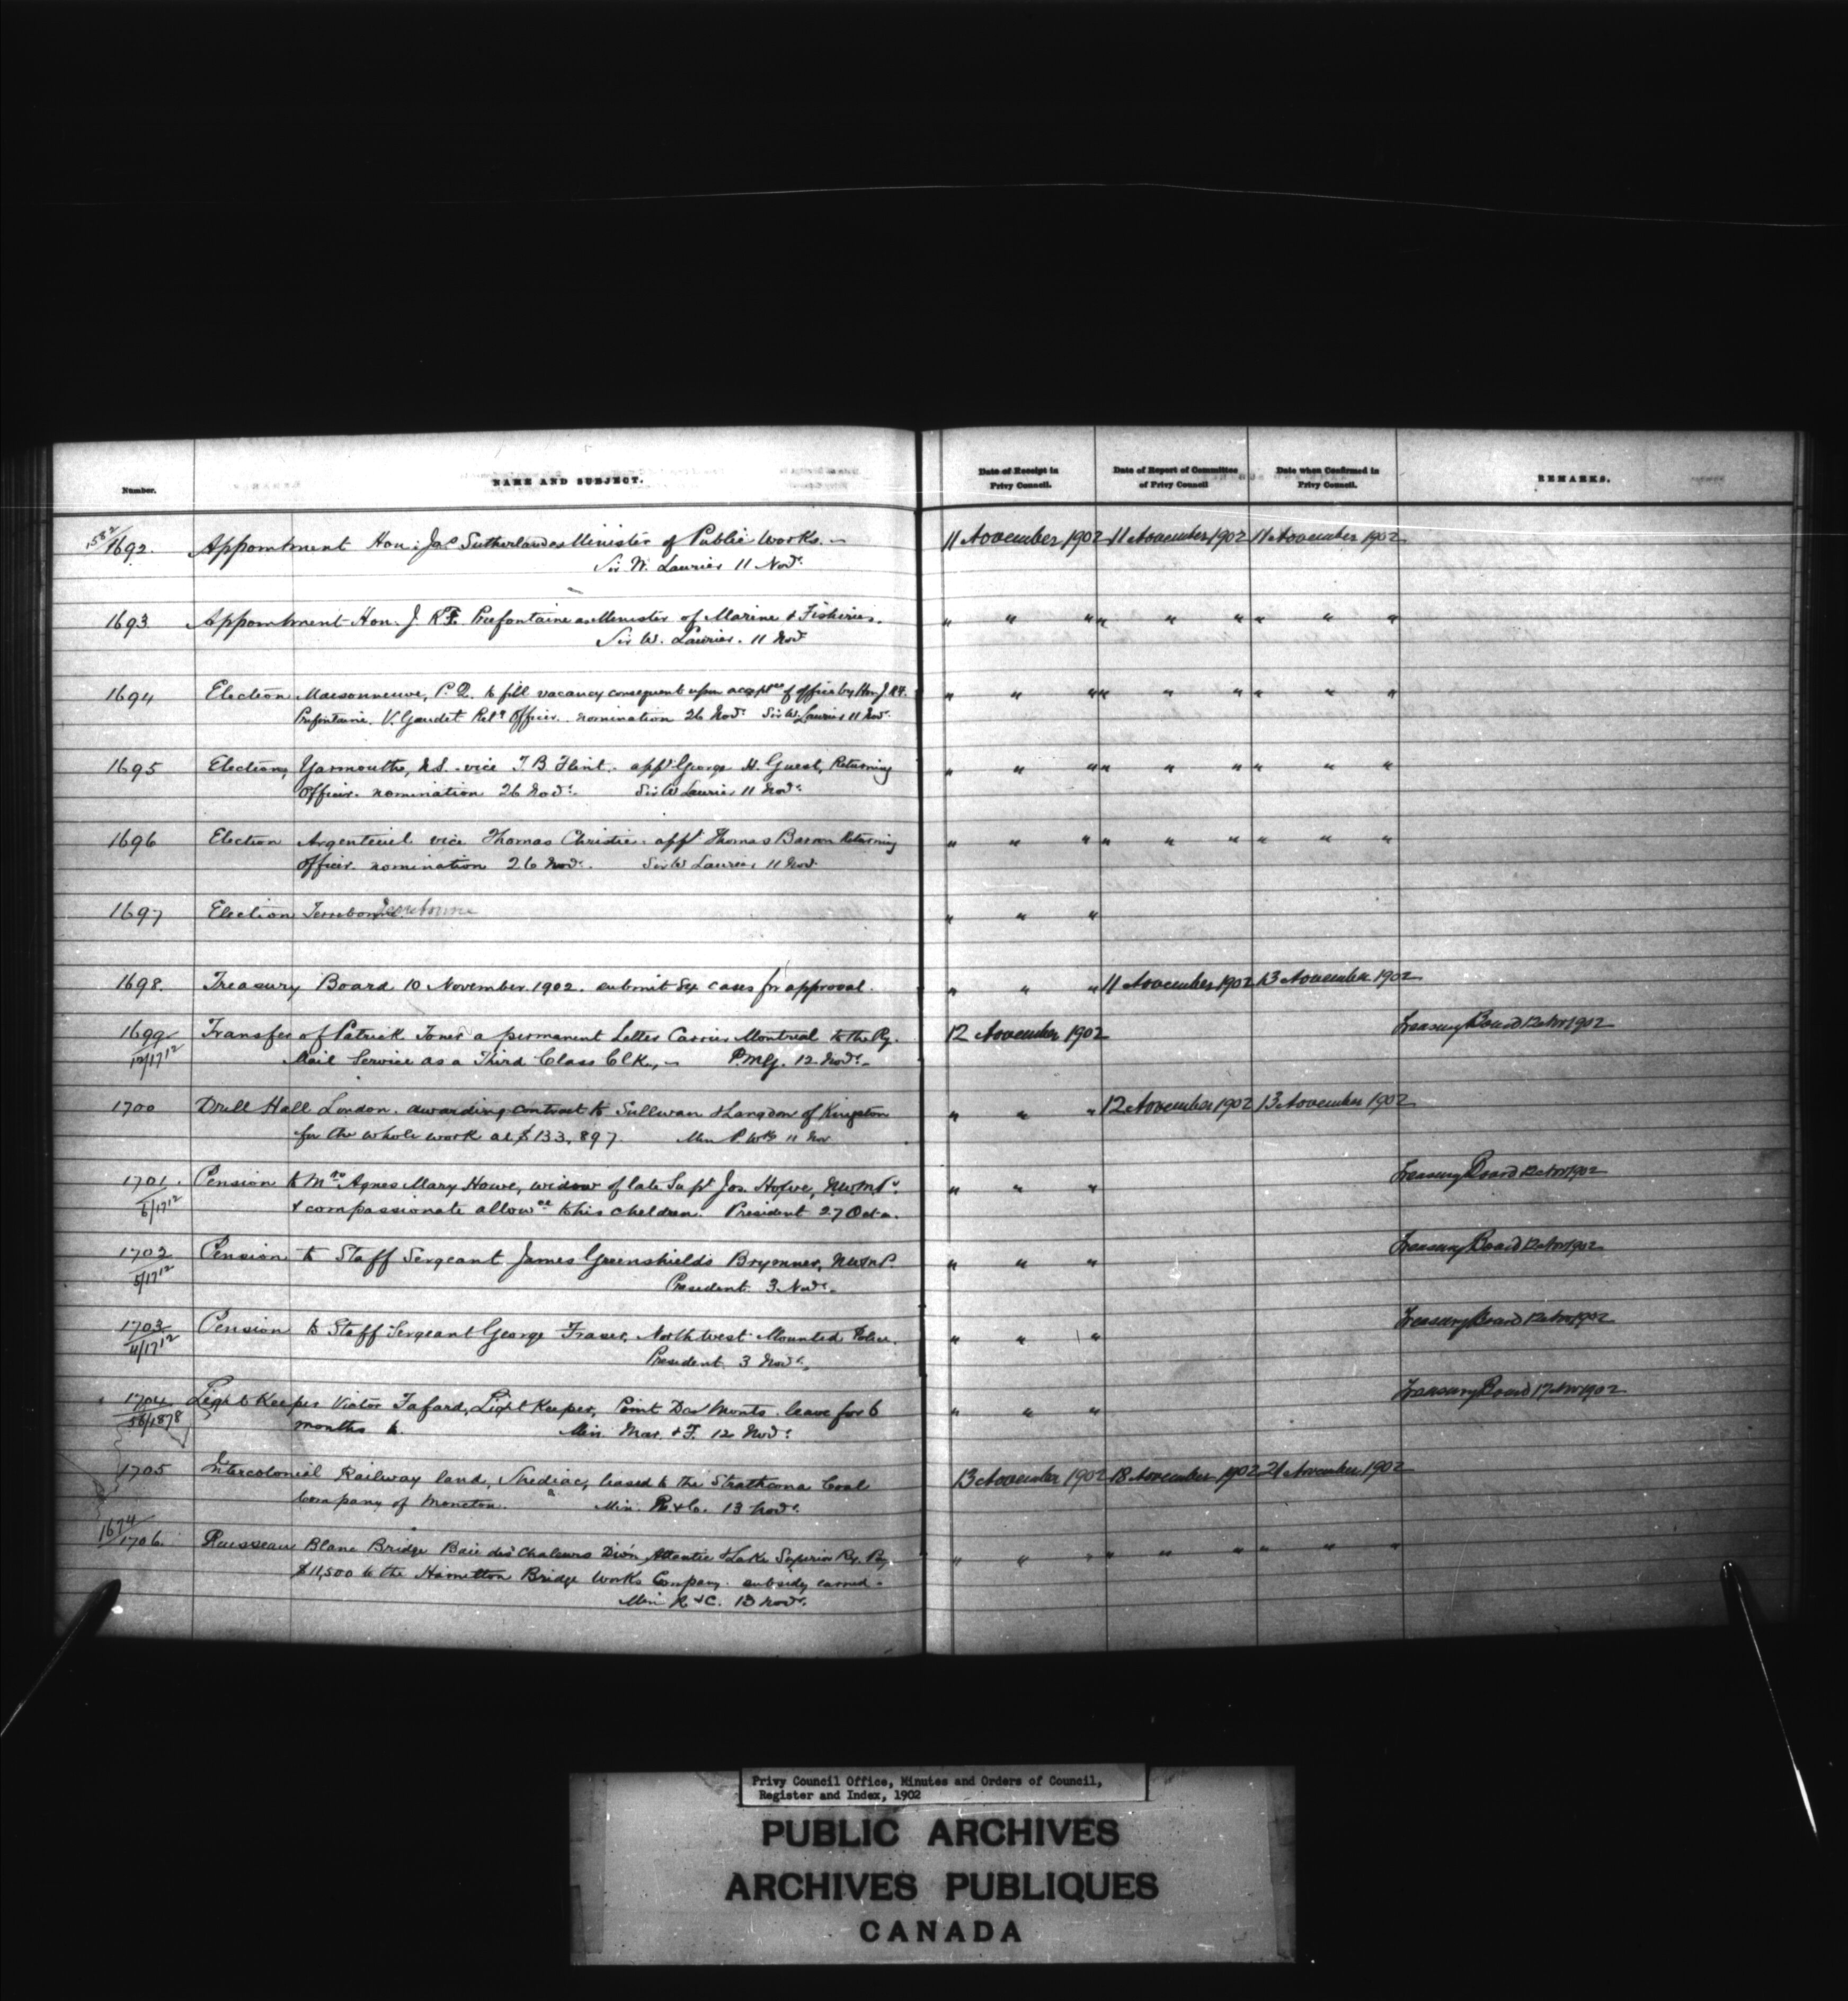 Number. NAME AND SUBJECT. Date of Receipt in Privy Council. Date of Report of Committee of Privy Council Date when Confirmed in Privy Council. REMARKS.
1692. Appointment Hon: Jas Sutherland as Minister of Public Works. – 11 November 1902 11 November 1902 11 November 1902
Sir W. Laurier 11 Novr.
1693 Appointment Hon. J R F. Prefontaine as Minister of Marine & Fisheries. " " " " " " " " "
Sir W. Laurier. 11 Novr
1694 Election Maisonneuve, P.Q. to fill vacancy consequent upon acceptce of office by Hon J R F. " " " " " " " " "
Prefontaine. V. Gaudet Retg Officer. nomination 26 Novr Sir W. Laurier 11 Novr.
1695 Election, Yarmouth, N.S. vice T. B Flint. appt George H. Guest, Returning " " " " " " " " "
Officer. nomination 26 Novr. Sir W Laurier 11 Novr.
1696 Election Argenteuil vice Thomas Christie. appt Thomas Barron Returning " " " " " " " " "
Officer. nomination 26 Novr. Sir W Laurier 11 Novr
1697 Election Terrebonne Terrebonne " " "
1698. Treasury Board 10 November 1902. submit Six cases for approval. " " " 11 November 1902 13 November 1902
1699 Transfer of Patrick Jones a permanent Letter Carrier Montreal to the Ry. 12 November 1902 Treasury Board 12 Nov 1902
Mail Service as a Third Class Clk, – P.M.G. 12 Novr.
1700 Drill Hall London. awarding contract to Sullivan & Langdon of Kingston " " " 12 November 1902 13 November 1902
for the whole work at $133,897. Min P. Wks 11 Nov
1701. Pension to Mrs Agnes Mary Howe, widow of late Supt Jos. Howe, NWMP. " " " Treasury Board 12 Nov 1902
6/1712 & compassionate allowce to his children. President 27 Oct.
1702 Pension to Staff Sergeant James Greenshields Brymner, NWMP. " " " Treasury Board 12 Nov 1902
5/1712 President 3 Novr.
1703 Pension to Staff Sergeant George Fraser, North West Mounted Police. " " " Treasury Board 12 Nov 1902
4/1712 President. 3 Novr.
1704 Light Keeper Victor Fafard, Light Keeper, Point Des Monts. leave for 6 " " " Treasury Board 17 Nov 1902
months Min. Mar. & F. 12 Novr.
1705 Intercolonial Railway land, Shediac, leased to the Strathcona Coal 13 November 1902 18 November 1902 21 November 1902
Company of Moncton. Min. R. & C. 13 Novr.
1674/1706. Ruisseau Blanc Bridge Baie des Chaleurs Divn Atlantic & Lake Superior Ry. Py, " " " " " " " " "
$11,500 to the Hamilton Bridge Works Company. subsidy earned –
Min R & C. 13 Novr.
Privy Council Office, Minutes and Orders of Council,
Register and Index, 1902
PUBLIC ARCHIVES
ARCHIVES PUBLIQUES
CANADA